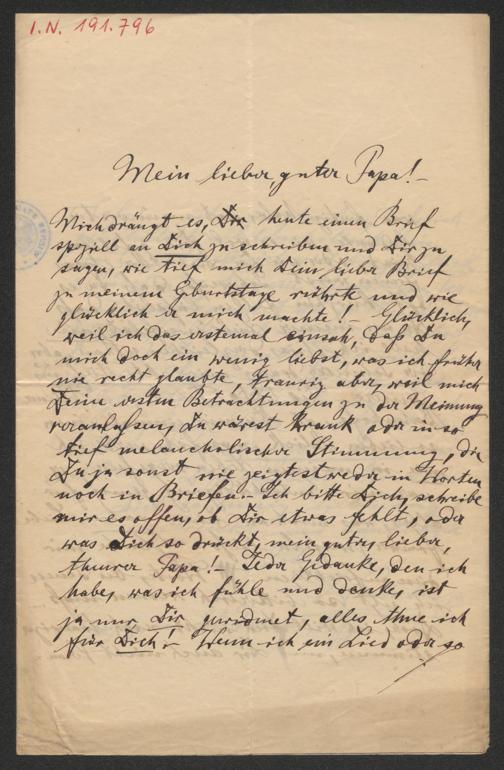 I.N. 191.796
Mein lieber guter Papa! –
Mich drängt es, Dir heute einen Brief
speziell an Dich zu schreiben und Dir zu
sagen, wie tief mich Dein lieber Brief
zu meinem Geburtstage rührte und wie
glücklich er mich machte! – Glücklich,
weil ich das erstemal einsah, daß Du
mich doch ein wenig liebst, was ich früher
nie recht glaubte, traurig aber, weil mich
Deine ersten Betrachtungen zu der Meinung
veranlassen, Du wärest krank oder in so
tief melancholischer Stimmung, die
Du ja sonst nie zeigtest weder in Worten
noch in Briefen. – Ich bitte Dich, schreibe
mir es offen, ob Dir etwas fehlt, oder
was Dich so drückt, mein guter, lieber,
theurer Papa! – Jeder Gedanke, den ich
habe, was ich fühle und denke, ist
ja nur Dir gewidmet, alles thue ich
für Dich! – Wenn ich ein Lied oder so